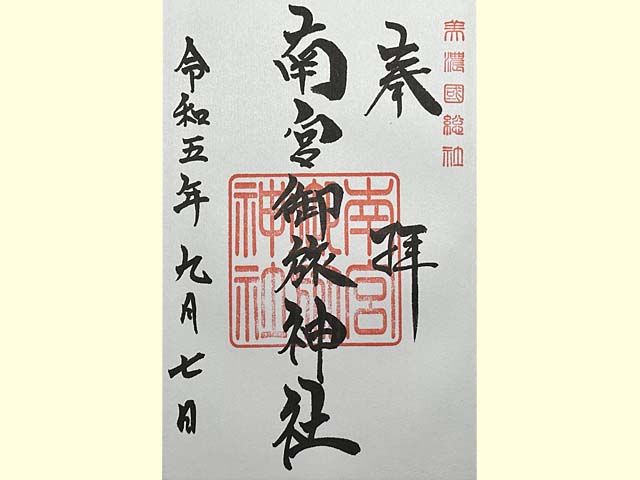 美濃國総社
奉拝
南宮御旅神社
南宮御旅神社
令和五年九月七日